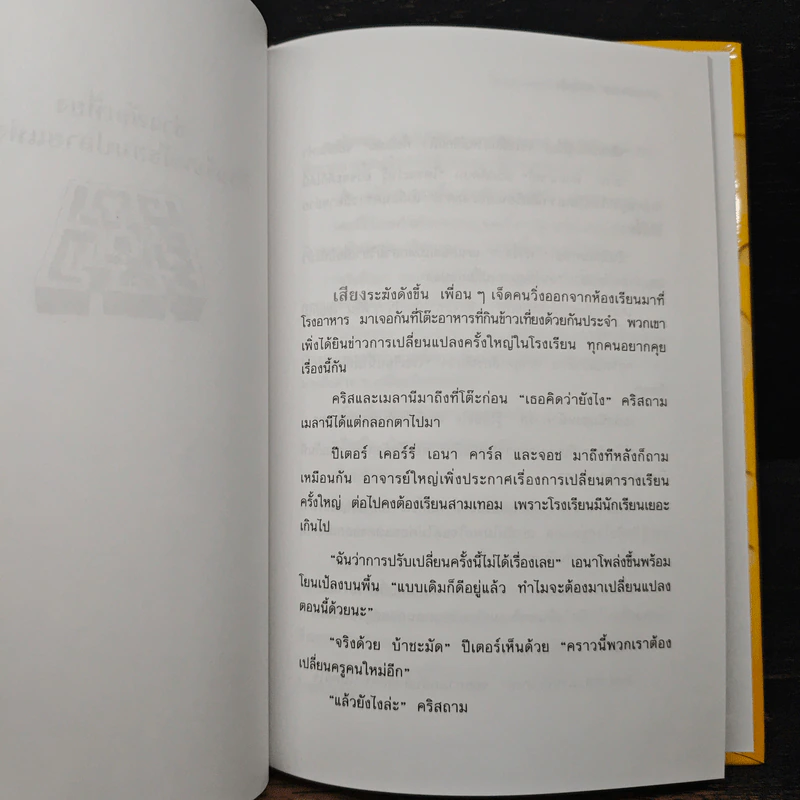 เสียงระฆังดังขึ้น เพื่อน ๆ เจ็ดคนวิ่งออกจากห้องเรียนมาที่
โรงอาหาร มาเจอกันที่โต๊ะอาหารที่กินข้าวเที่ยงด้วยกันประจำ พวกเขา
เพิ่งได้ยินข่าวการเปลี่ยนแปลงครั้งใหญ่ในโรงเรียน ทุกคนอยากคุย
เรื่องนี้กัน
คริสและเมลานีมาถึงที่โต๊ะก่อน “เธอคิดว่ายังไง” คริสถาม
เมลานีได้แต่กลอกตาไปมา
ปีเตอร์ เคอร์รี่ เอนา คาร์ล และจอช มาถึงทีหลังก็ถาม
เหมือนกัน อาจารย์ใหญ่เพิ่งประกาศเรื่องการเปลี่ยนตารางเรียน
ครั้งใหญ่ ต่อไปคงต้องเรียนสามเทอม เพราะโรงเรียนมีนักเรียนเยอะ
เกินไป
“ฉันว่าการปรับเปลี่ยนครั้งนี้ไม่ได้เรื่องเลย” เอนาโพล่งขึ้นพร้อม
โยนเป้ลงบนพื้น “แบบเดิมก็ดีอยู่แล้ว ทำไมจะต้องมาเปลี่ยนแปลง
ตอนนี้ด้วยนะ”
“จริงด้วย บ้าชะมัด” ปีเตอร์เห็นด้วย “คราวนี้พวกเราต้อง
เปลี่ยนครูคนใหม่อีก”
“แล้วยังไงล่ะ” คริสถาม